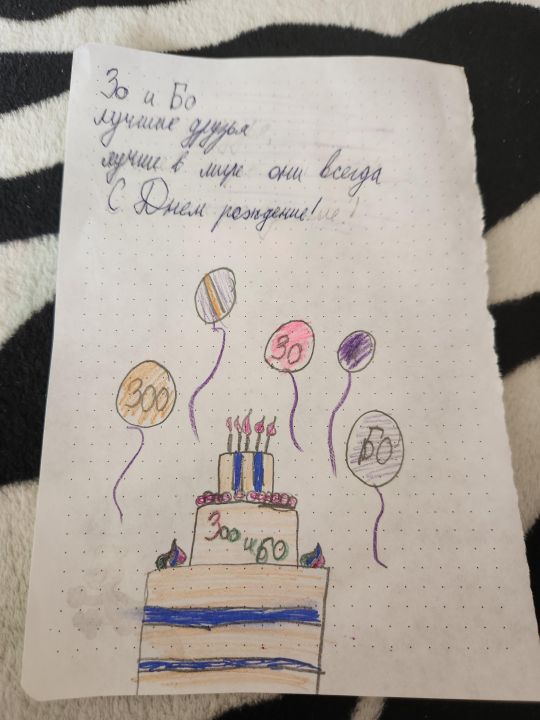 Зо и Бо
лучшие друзья
лучше в мире они всегда
С Днем рождение!
ЗО
ЗОО
БО
Зоо и БО